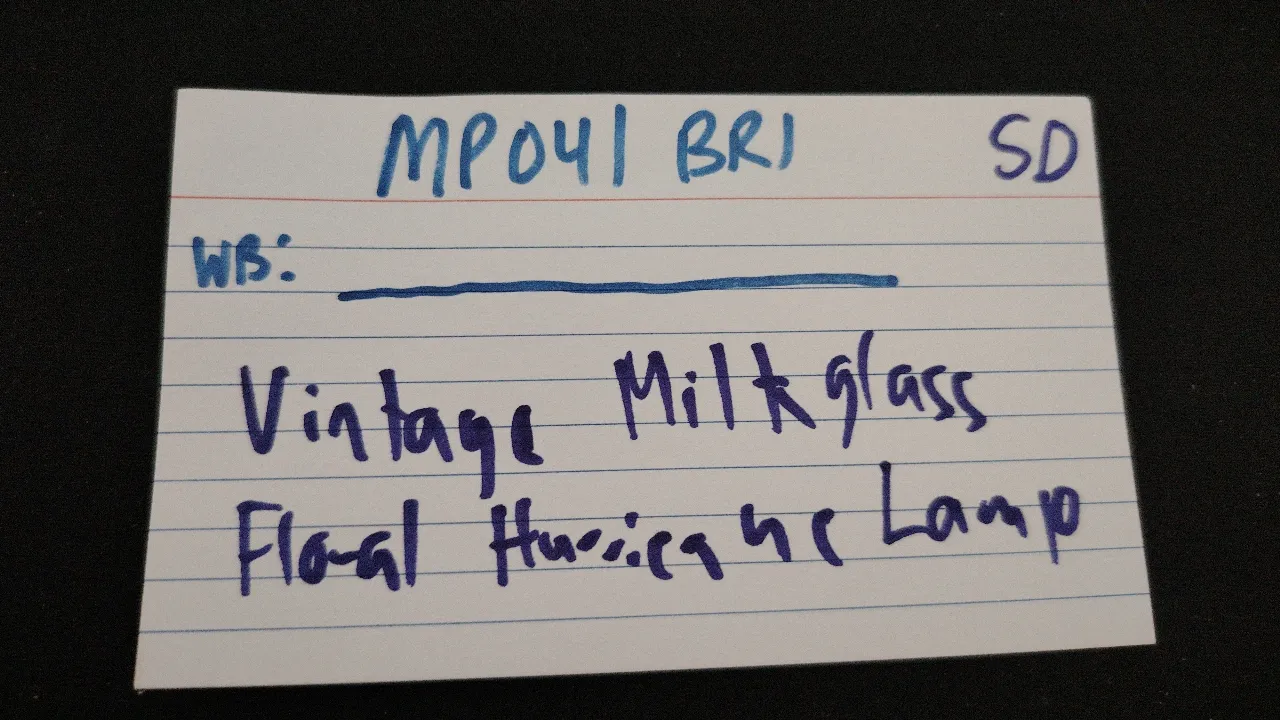 MP041 BR1 SD
WB:
Vintage Milkglass
Floral Hurricane Lamp